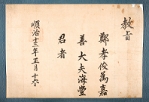 教旨
鄭孝俊爲嘉
善大夫海豐
君者
順治十三年五月十六